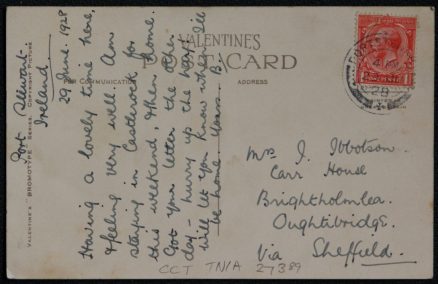 VALENTINE'S
POST CARD
FOR COMMUNICATION
ADDRESS
VALENTINE'S "BROMOTYPE" SERIES. COPYRIGHT PICTURE
Port Stewart.
Ireland
29 June. 1928
Having a lovely time here,
& feeling very well. Am
staying in Castlerock for
this weekend, & then home.
Got your letter the other
day - hurry up the house. I'll
will let you know when I'll
be home. Yours B.
28
1
Mrs J. Ibbotson.
Carr House
Brightholmlea.
Oughtibridge.
Via Sheffield.
CCT TN/A 27389